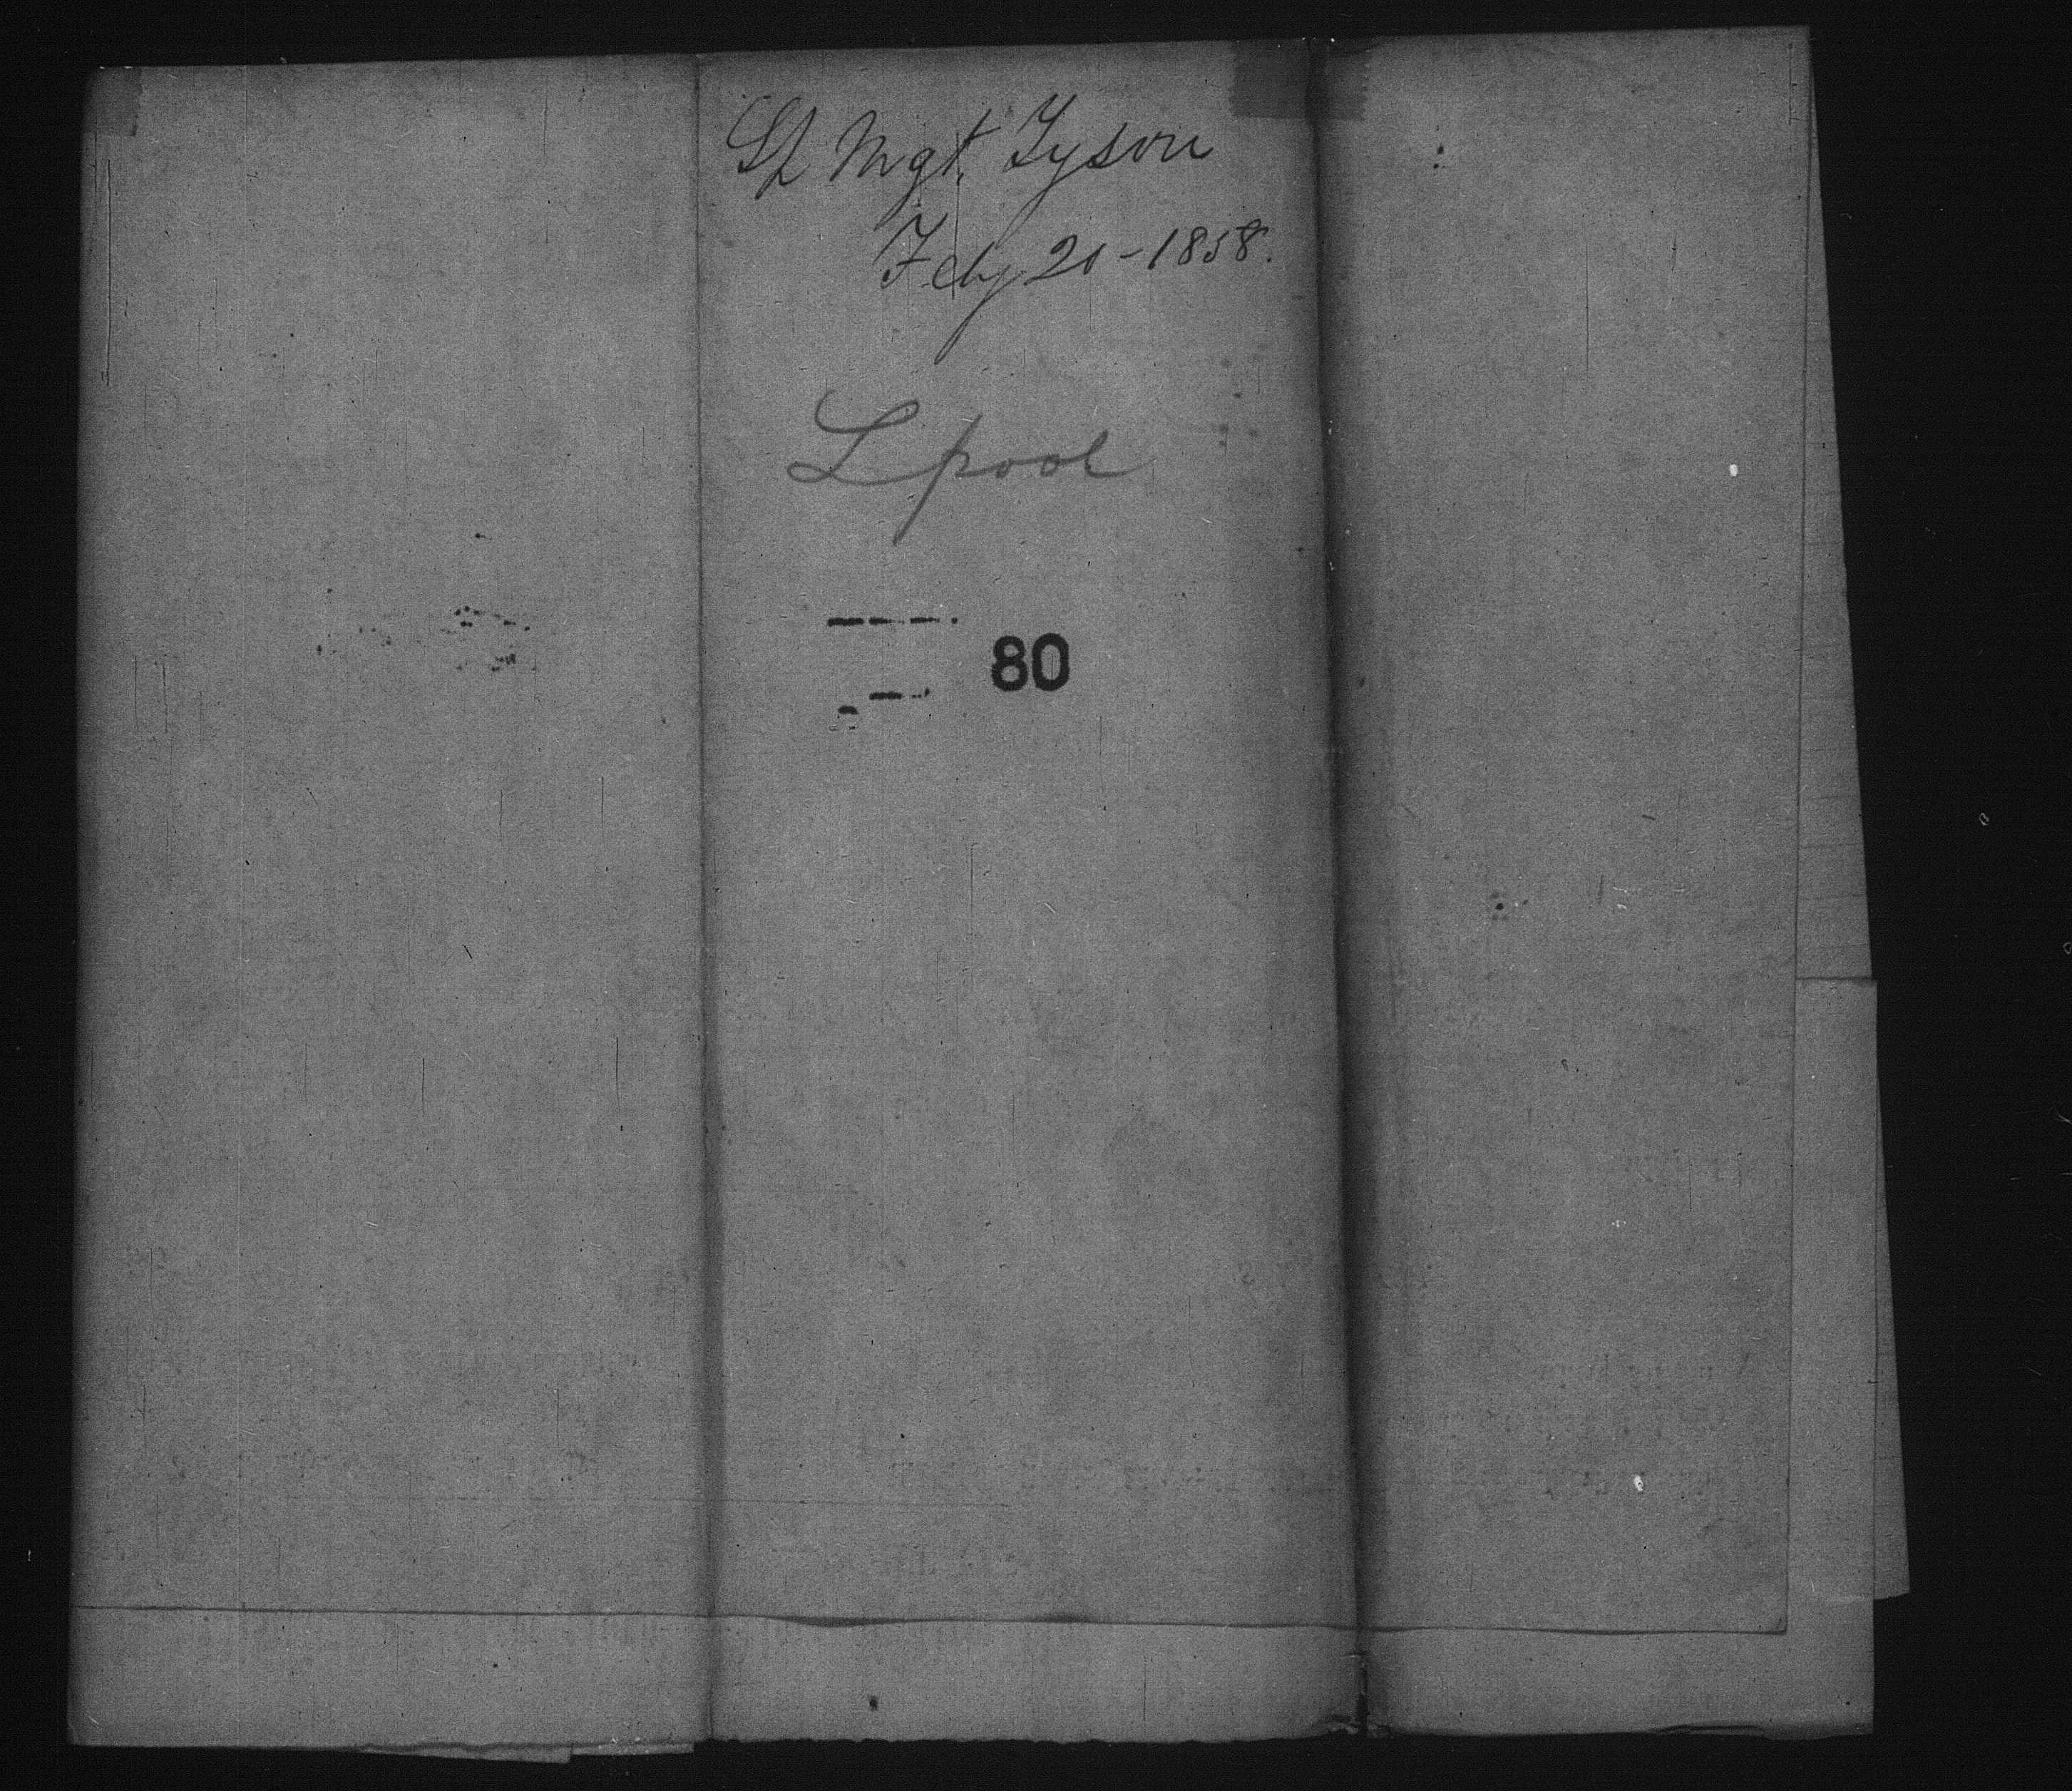 Sh Mgt. Tyson
Feby 20 - 1858.
Lpool
80